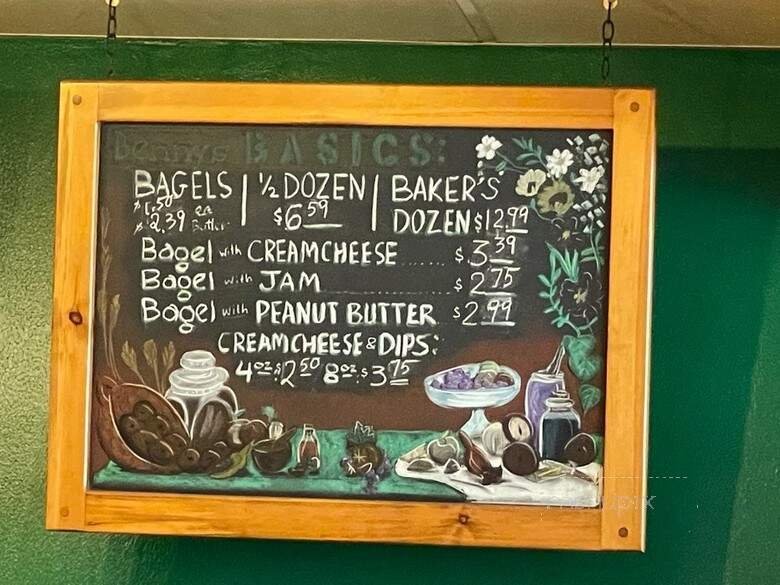 Benny's BASICS:
BAGELS | ½ DOZEN | BAKER'S
$1.50 ea $6.59 DOZEN $12.99
$2.39 Butter
Bagel with CREAMCHEESE ...... $3.39
Bagel with JAM ................ $2.75
Bagel with PEANUT BUTTER $2.99
CREAMCHEESE & DIPS:
4oz $2.50 8oz $3.75